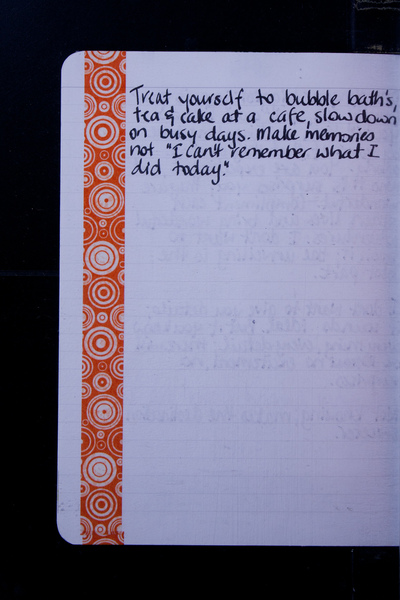 Treat yourself to bubble bath's,
tea & cake at a cafe, slow down
on busy days. Make memories
not "I can't remember what I
did today."